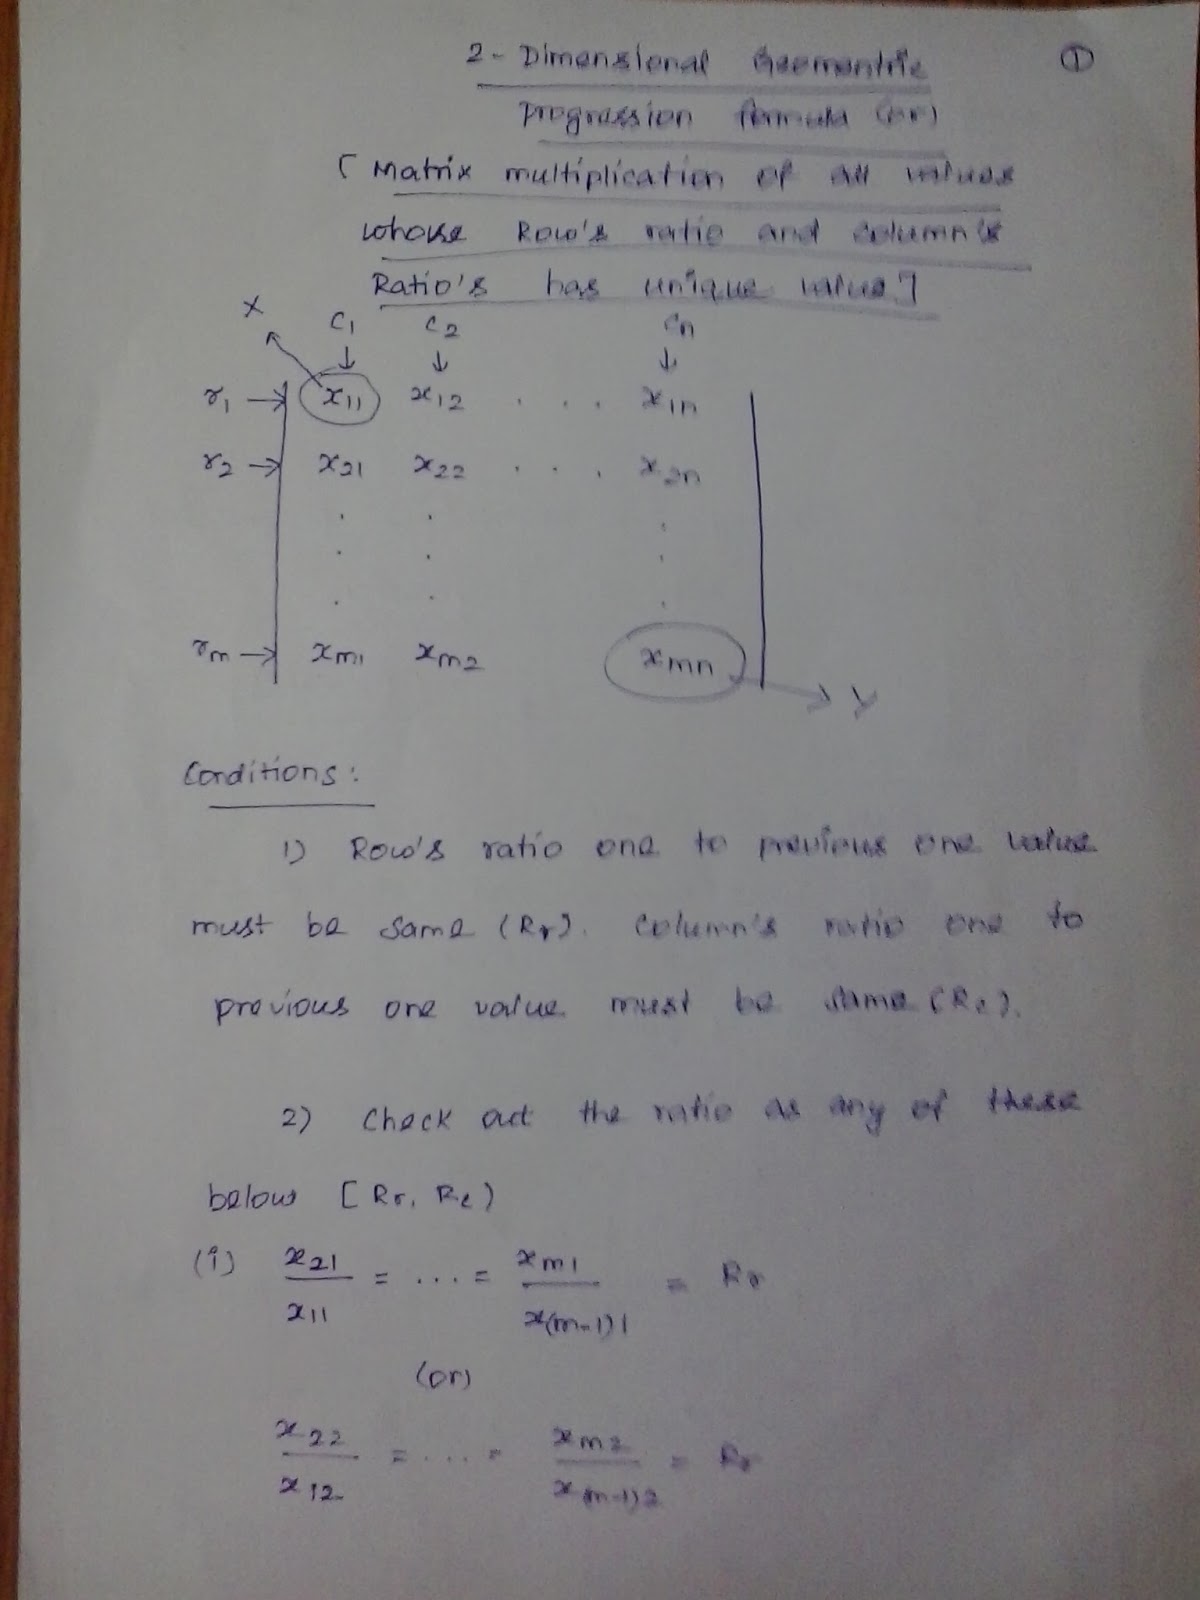 2- Dimensional Geomentric ①
Progression formula (or)
[ Matrix multiplication of all values
whose Row's ratio and column's
Ratio's has unique value]
X C1 C2 Cn
↓ ↓ ↓
r1 → x11 x12 . . . x1n
r2 → x21 x22 . . . x2n
. . .
. . .
. . .
rm → xm1 xm2 xmn
Y
Conditions:
1) Row's ratio one to previous one value
must be same (Rr). Column's ratio one to
previous one value must be same (Rc).
2) Check out the ratio as any of these
below [Rr, Rc)
(i) x21/x11 = ... = xm1/x(m-1)1 = Rr
(or)
x22/x12 = .... = xm2/x(m-1)2 = Rr